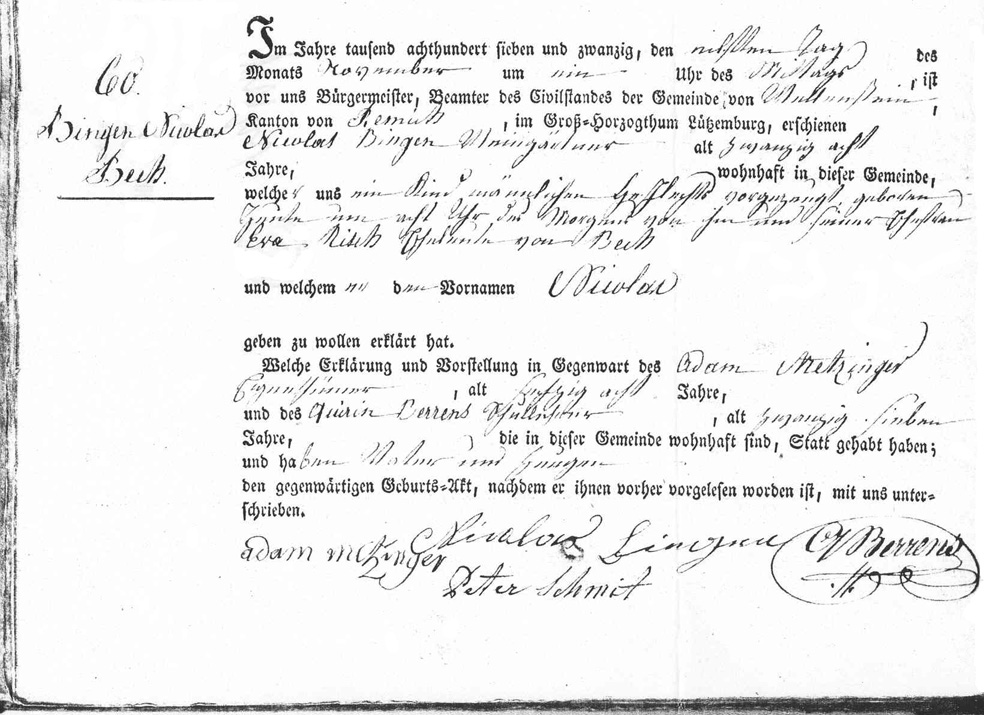 60.
Bingen Nicolas
Bech.
Im Jahre tausend achthundert sieben und zwanzig, den eilften Tag des
Monats November um ein Uhr des Mittags, ist
vor uns Bürgermeister, Beamter des Civilstandes der Gemeinde von Wellenstein,
Kanton von Remich, im Groß-Herzogthum Lützemburg, erschienen
Nicolas Bingen Weingärtner alt zwanzig acht
Jahre, wohnhaft in dieser Gemeinde,
welcher uns ein Kind männlichen Geschlechts vorgezeugt, geboren
heute um acht Uhr des Morgens von ihm und seiner Ehefrau
Eva Eheleute von Bech
und welchem er den Vornamen Nicolas
geben zu wollen erklärt hat.
Welche Erklärung und Vorstellung in Gegenwart des Adam Metzinger
Eigenthümer, alt acht Jahre,
und des Quirin Berrens Schullehrer, alt zwanzig sieben
Jahre, die in dieser Gemeinde wohnhaft sind, Statt gehabt haben;
und haben Vater und Zeugen
den gegenwärtigen Geburts-Akt, nachdem er ihnen vorher vorgelesen worden ist, mit uns unter-
schrieben.
adam metzinger Nicolas Bingen Q Berrens
Peter Schmit